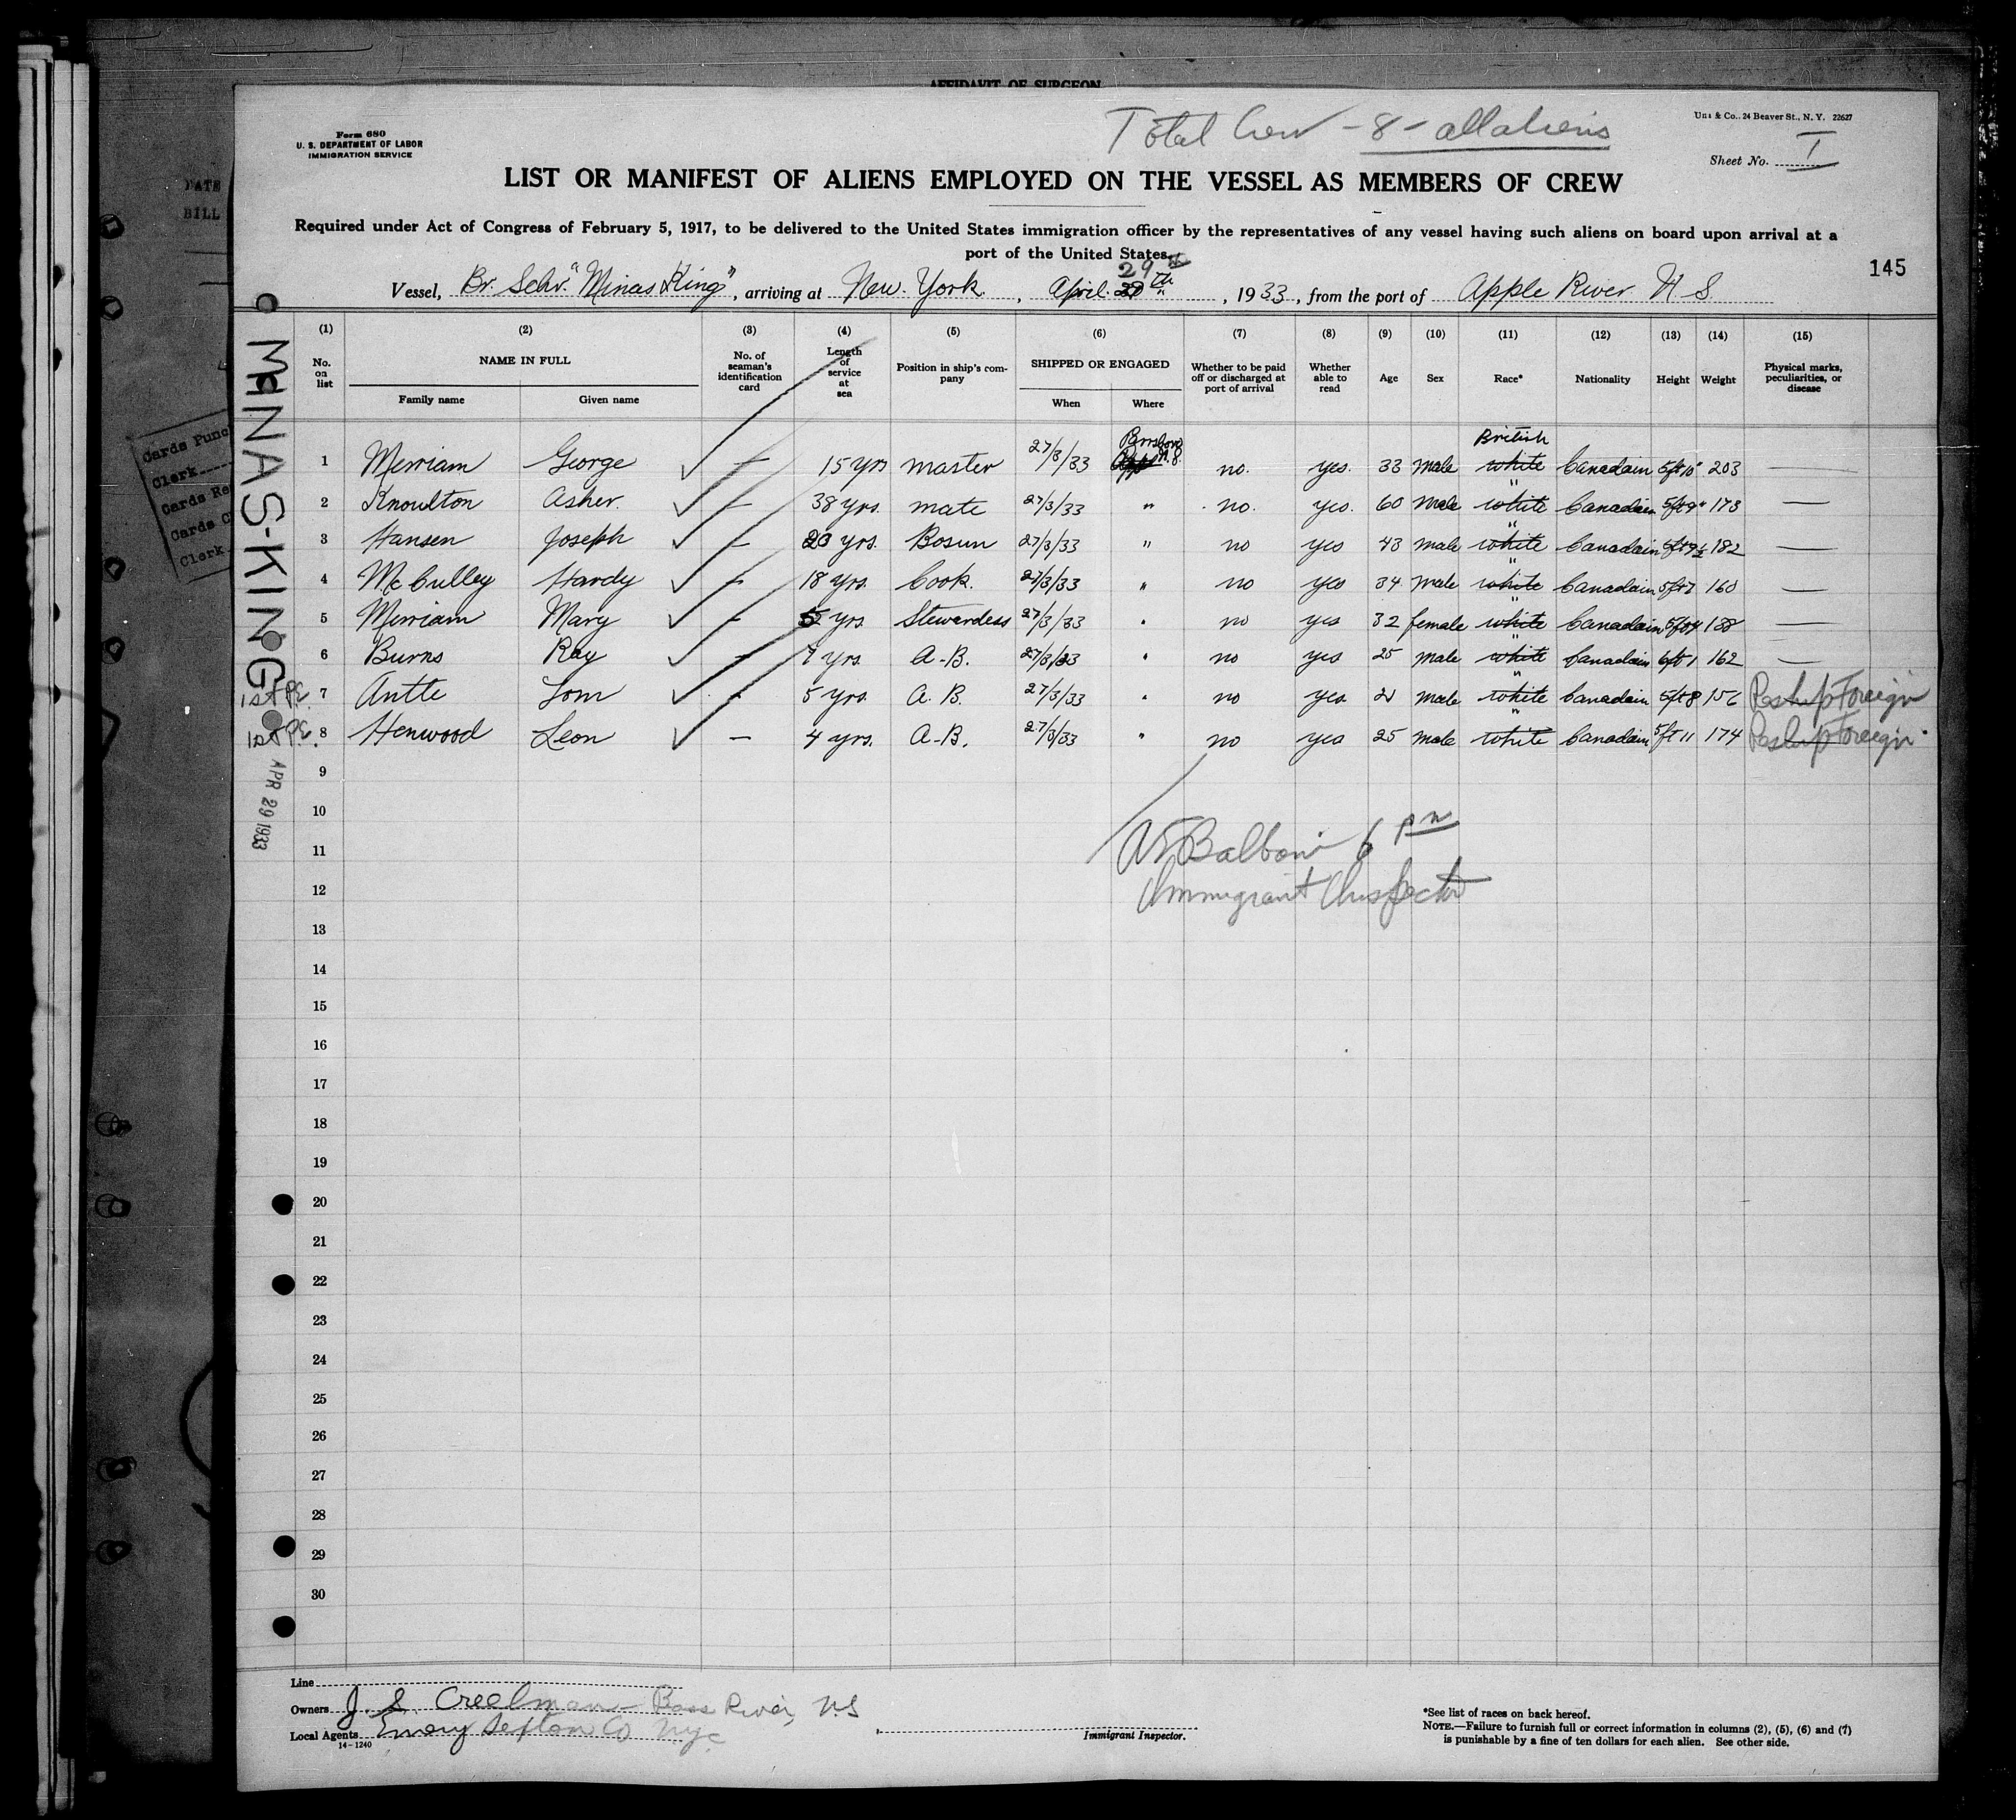 AFFIDAVIT OF SURGEON
Total Crew - 8 - all aliens
Form 680
U. S. DEPARTMENT OF LABOR
IMMIGRATION SERVICE
& Co., 24 Beaver St., N. Y. 22627
Sheet No. I
LIST OR MANIFEST OF ALIENS EMPLOYED ON THE VESSEL AS MEMBERS OF CREW
Required under Act of Congress of February 5, 1917, to be delivered to the United States immigration officer by the representatives of any vessel having such aliens on board upon arrival at a
port of the United States
145
Vessel, Br. Schr. "Minas King", arriving at New. York, April 29 th, 1933, from the port of Apple River N S.
(1) (2) (3) (4) (5) (6) (7) (8) (9) (10) (11) (12) (13) (14) (15)
No. on list
NAME IN FULL
Family name Given name
No. of seaman's identification card
Length of service at sea
Position in ship's company
SHIPPED OR ENGAGED
When Where
Whether to be paid off or discharged at port of arrival
Whether able to read
Age
Sex
Race*
Nationality
Height
Weight
Physical marks, peculiarities, or disease
British
1 Merriam George ✓ — 15 yrs master 27/3/33 N.S. no. yes. 33 male white Canadain 5ft10" 203 —
2 Knoulton Asher. ✓ — 38 yrs. mate 27/3/33 " no. yes. 60 male " white Canadain 5ft9" 173 —
3 Hansen Joseph ✓ — 20 yrs. Bosun 27/3/33 " no yes 43 male " white Canadain 5ft9½ 182 —
4 McCulley Hardy ✓ — 18 yrs. Cook. 27/3/33 " no yes 34 male " white Canadain 5ft7 160 —
5 Merriam Mary ✓ — 5 yrs. Stewardess 27/3/33 " no yes 32 female " white Canadain 5ft4 188 —
6 Burns Ray ✓ — 7 yrs. A-B. 27/3/33 " no yes 25 male " white Canadain 6ft1 162 —
1st P.E. 7 Antle Tom ✓ - 5 yrs. A. B. 27/3/33 " no yes. 21 male white Canadain 5ft8 156 Reship Foreign
1st P.E. 8 Henwood Leon ✓ — 4 yrs. A-B. 27/3/33 " no yes 25 male " white Canadain 5ft11 174 Reship Foreign
9
10
11
12
13
14
15
16
17
18
19
20
21
22
23
24
25
26
27
28
29
30
6 pm
Immigrant Inspector
MINAS-KING
APR 29 1933
DATE
BILL
Cards Punc
Clerk
Cards Re
Cards C
Clerk
Line
Owners J. S. Creelman - Bass River, N.S
Local Agents Emery Sexton Co NYC
14-1240
Immigrant Inspector.
*See list of races on back hereof.
NOTE.—Failure to furnish full or correct information in columns (2), (5), (6) and (7)
is punishable by a fine of ten dollars for each alien. See other side.